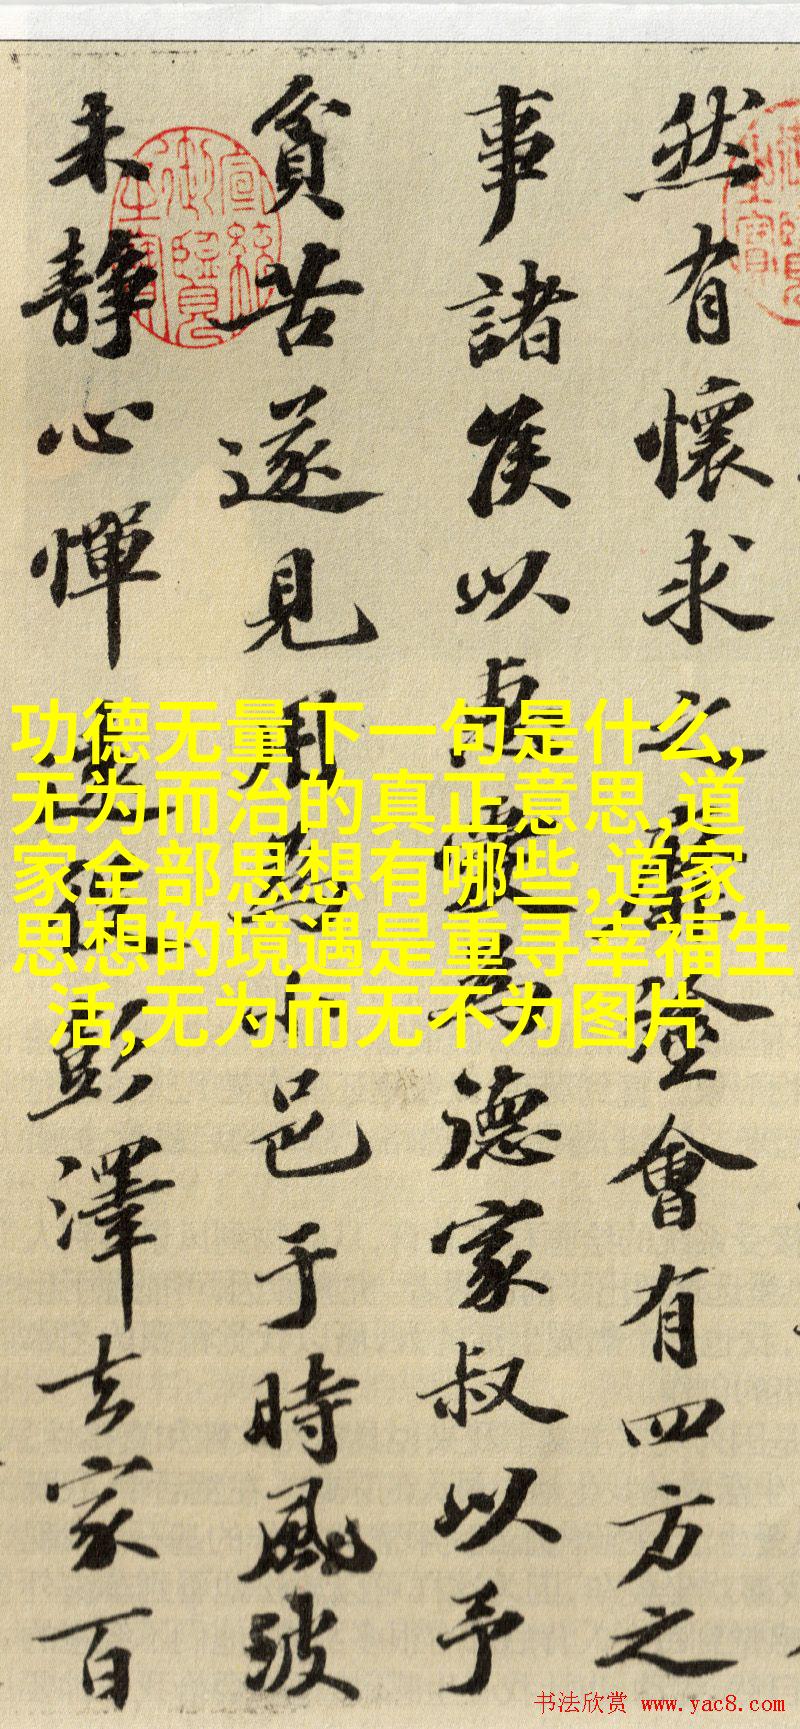 然有懷求之靡塗會有四方之
事諸侯以惠愛為德家叔以予
貧苦遂見用為小邑于時風波
未靜心憚遠役彭澤去家百
宣統御覽之寶
功德无量下一句是什么,
无为而治的真正意思,道
家全部思想有哪些,道家
思想的境遇是重寻幸福生
活,无为而无不为图片
书法欣赏 www.yac8.com